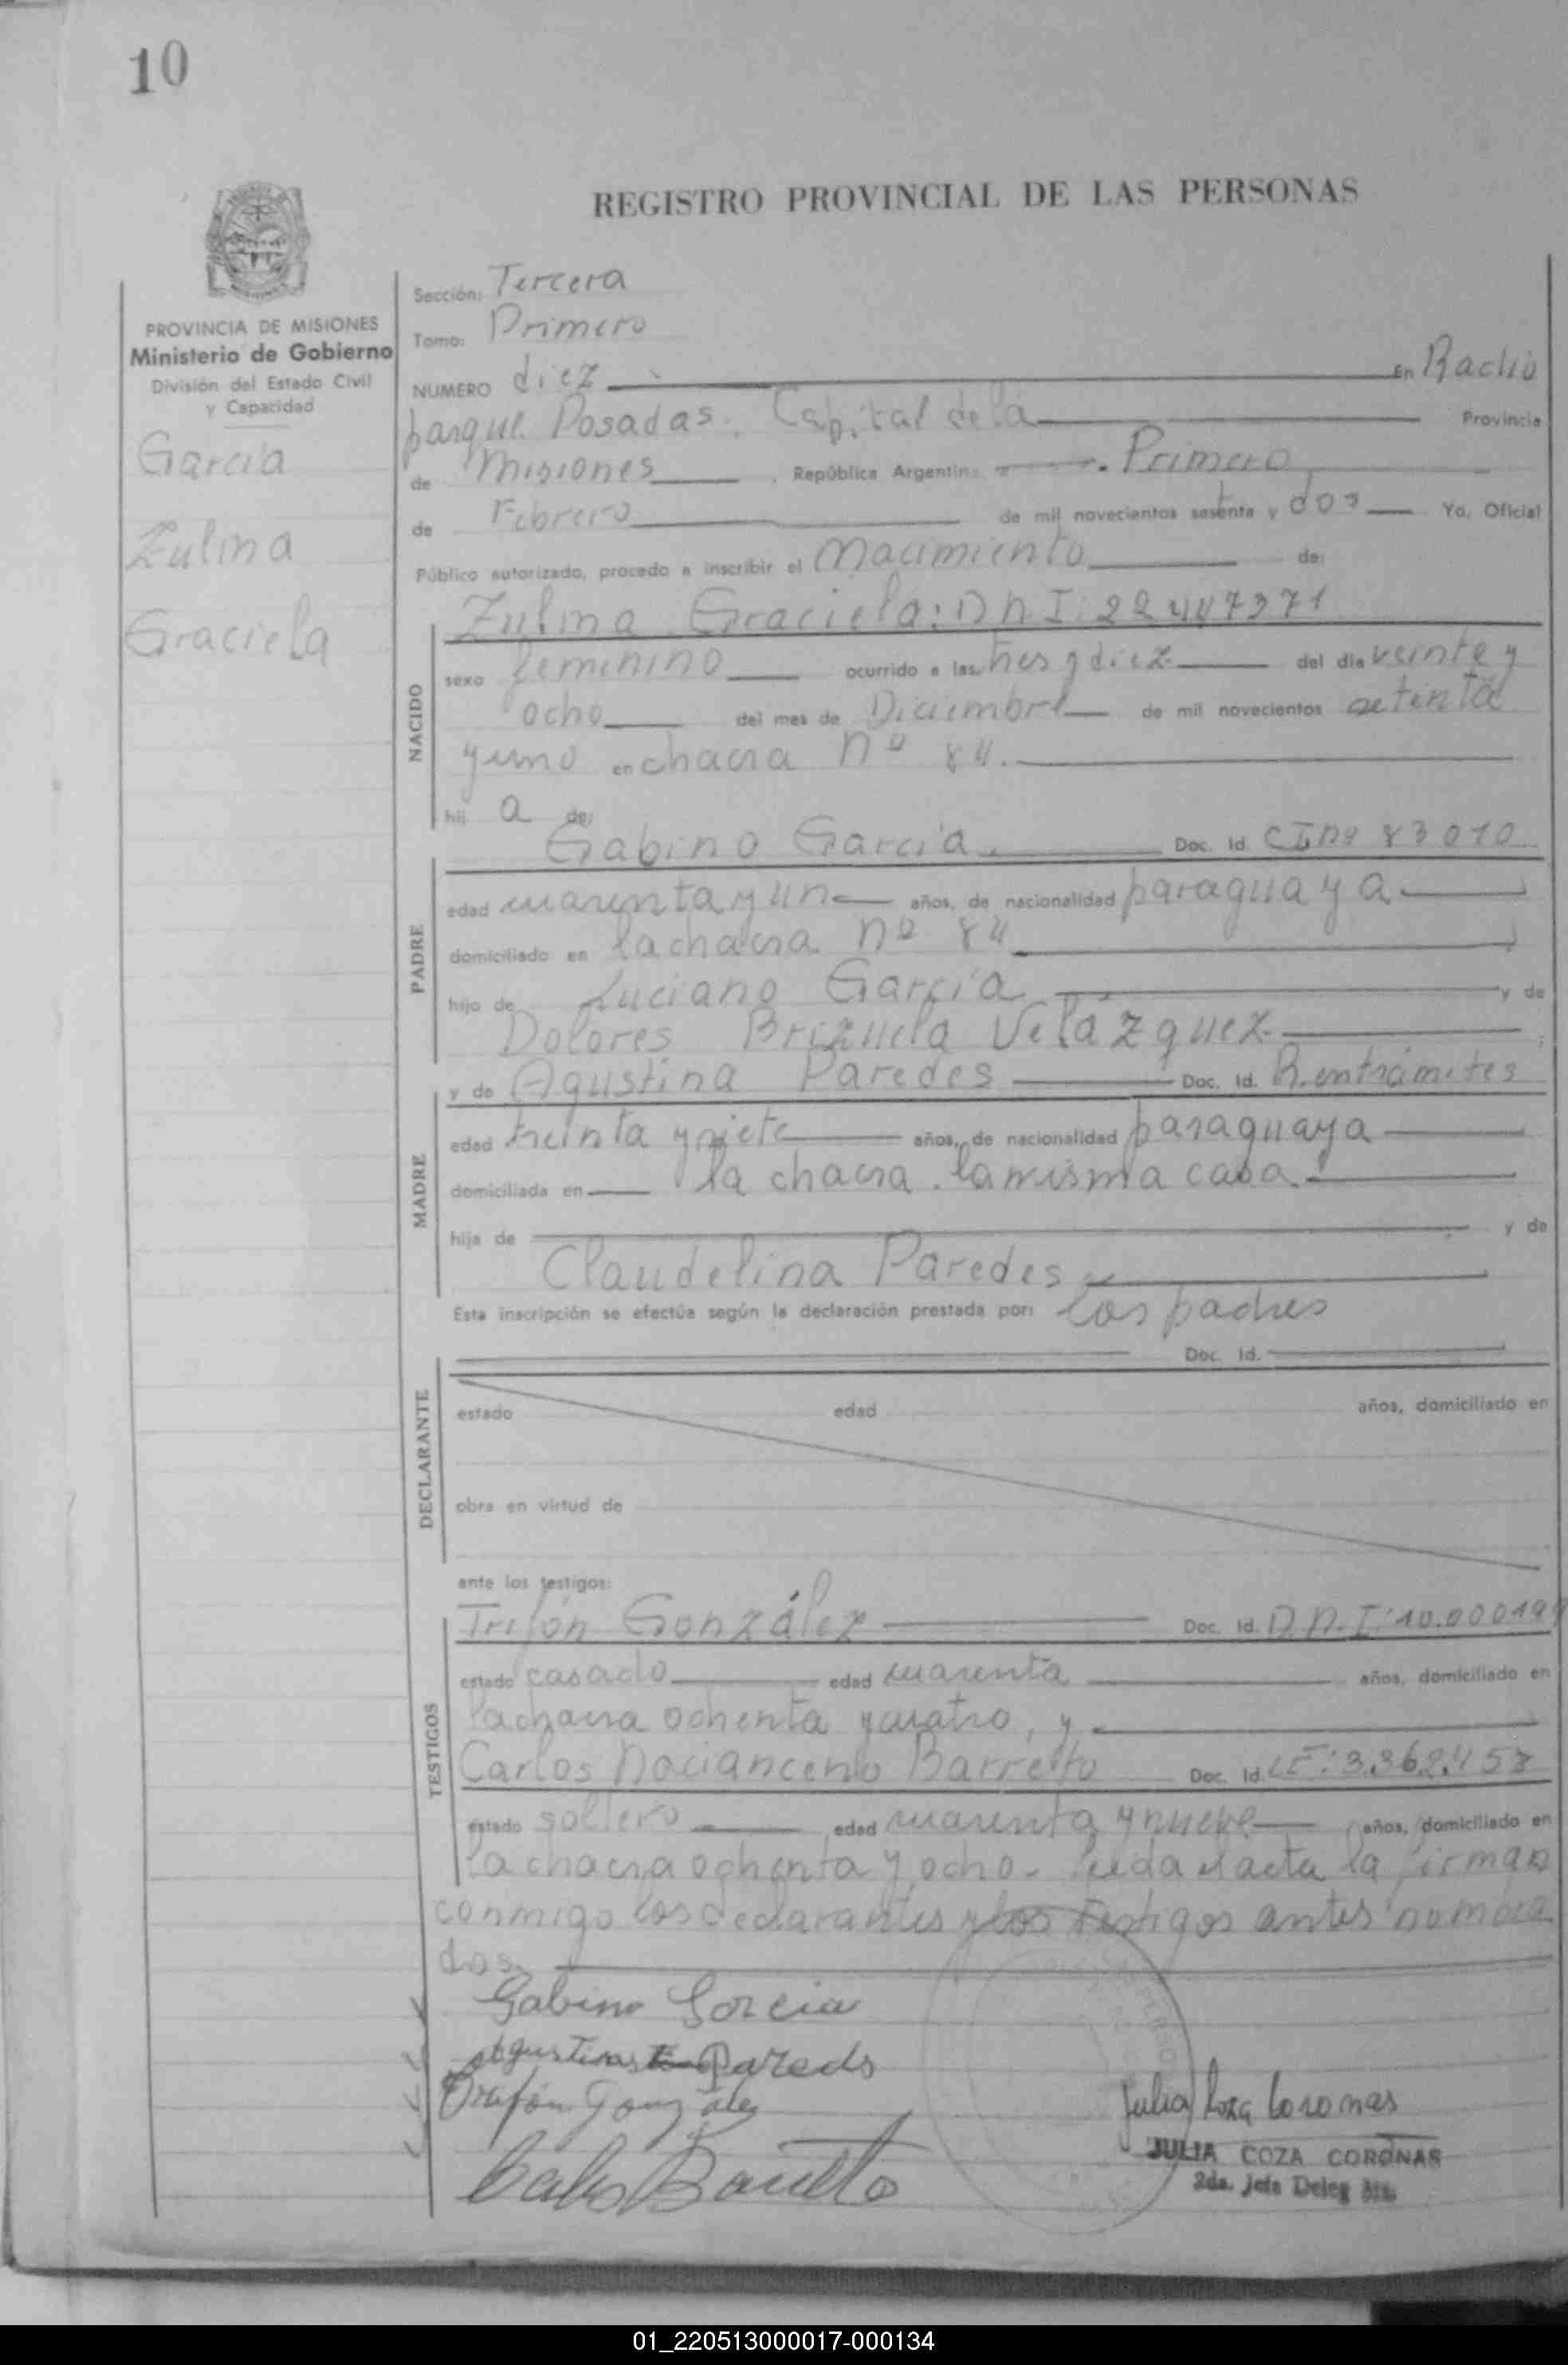 10
REGISTRO PROVINCIAL DE LAS PERSONAS
PROVINCIA DE MISIONES
Ministerio de Gobierno
División del Estado Civil
y Capacidad
Garcia
Zulma
Graciela
Sección: Tercera
Tomo: Primero
NUMERO diez En Rachó
parque Posadas. Capital de la Provincia
de Misiones, República Argentina Primero
de Febrero de mil novecientos sesenta y dos Yo, Oficial
Público autorizado, procedo a inscribir el Nacimiento de:
Zulma Graciela: D N I: 22447371
NACIDO
sexo femenino ocurrido a las tres y diez del día veinte y
ocho del mes de Diciembre de mil novecientos setenta
y uno en chacra Nº 84.
hij a de:
Gabino García. Doc. Id. C I Nº 83010
PADRE
edad cuarenta y un años, de nacionalidad paraguaya
domiciliado en la chacra nº 84
hijo de Luciano García y de
Dolores Brizuela Velázquez ;
y de Agustina Paredes Doc. Id. R. en trámites
MADRE
edad treinta y siete años, de nacionalidad paraguaya
domiciliada en la chacra. la misma casa
hija de y de
Claudelina Paredes
Esta inscripción se efectúa según la declaración prestada por: los padres
Doc. Id.
DECLARANTE
estado edad años, domiciliado en
obra en virtud de
ante los testigos:
TESTIGOS
Trifón González Doc. Id. D.N.I: 10.000199
estado casado edad cuarenta años, domiciliado en
la chacra ochenta y cuatro, y
Carlos Nacianceno Barreto Doc. Id. LE: 3.362.457
estado soltero edad cuarenta y nueve años, domiciliado en
la chacra ochenta y ocho. Leida el acta la firman
conmigo los declarantes y los testigos antes nombra
dos.
Gabino Garcia
Agustina Pareds
Trifón González
Carlos Barretto
Julia Coza Coronas
JULIA COZA CORONAS
2da. Jefa Deleg
01_220513000017-000134